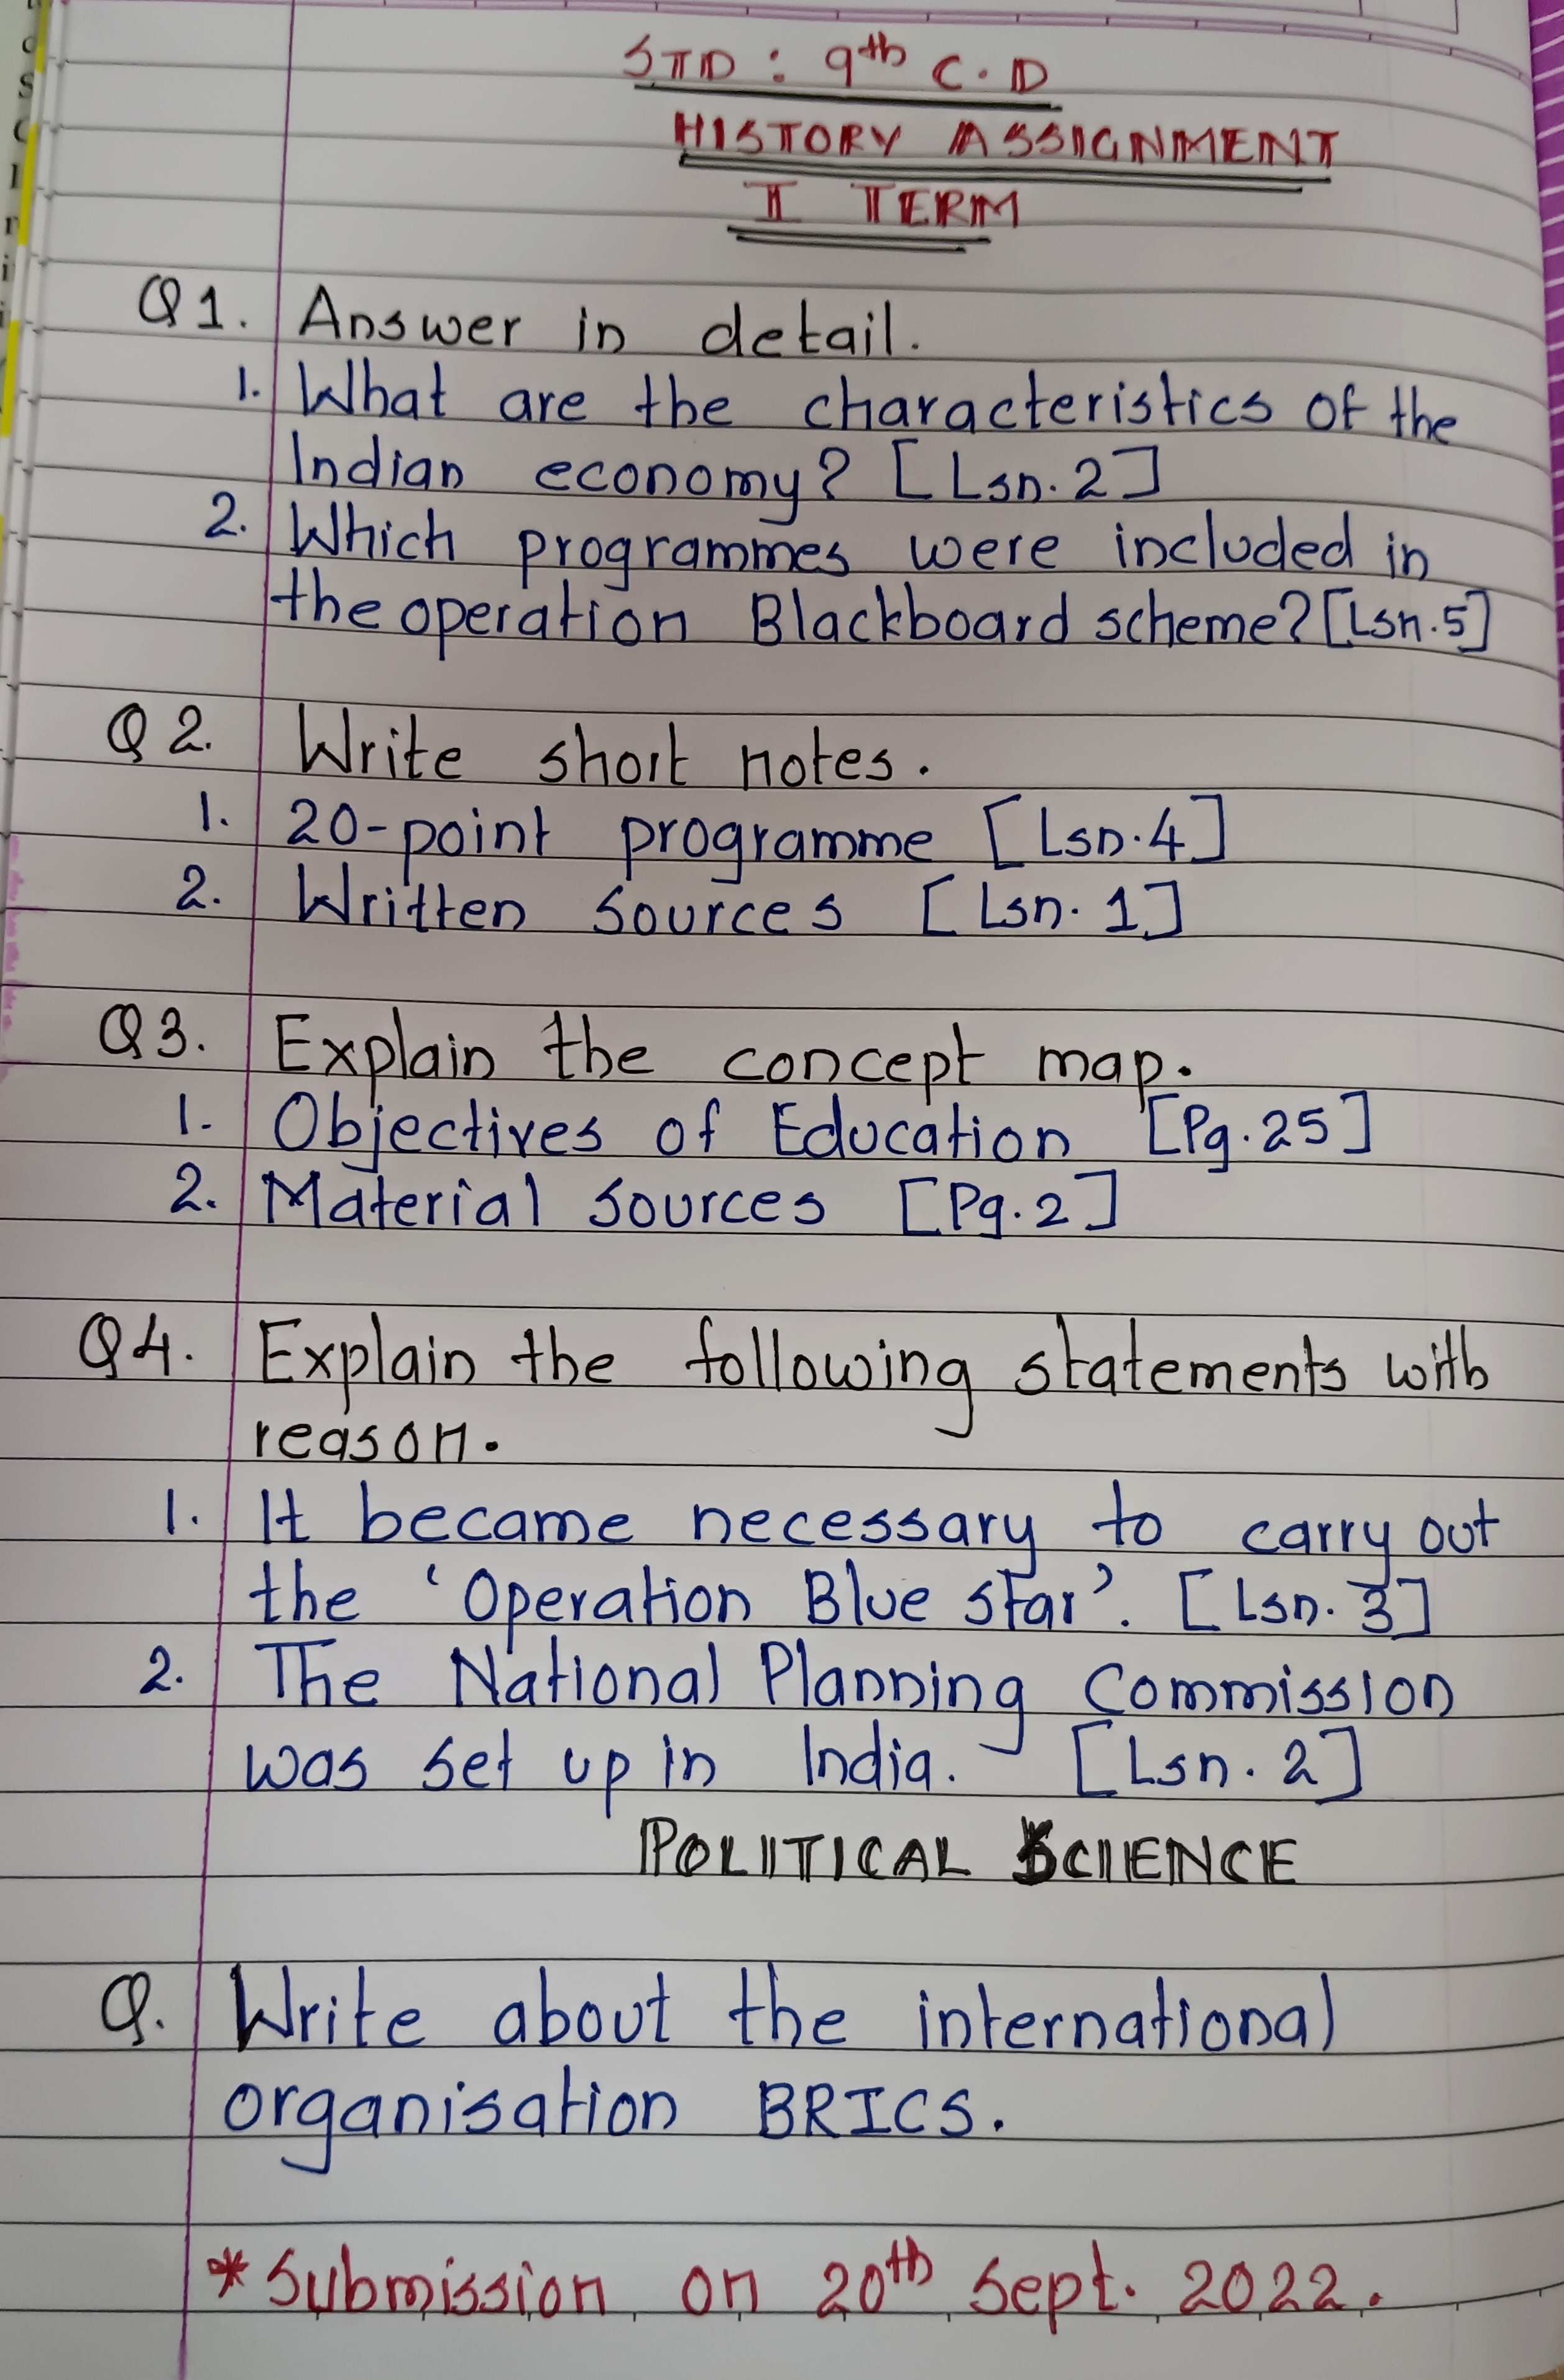 STD : 9th C.D
HISTORY ASSIGNMENT
I TERM
Q1. Answer in detail.
1. What are the characteristics of the
Indian economy? [Lsn. 2]
2. Which programmes were included in
the operation Blackboard scheme? [Lsn.5]
Q2. Write short notes.
1. 20-point programme [Lsn.4]
2. Written sources [Lsn. 1]
Q3. Explain the concept map.
1. Objectives of Education [Pg.25]
2. Material sources [Pg.2]
Q4. Explain the following statements with
reason.
1. It became necessary to carry out
the 'Operation Blue star'. [Lsn. 3]
2. The National Planning Commission
was set up in India. [Lsn. 2]
POLITICAL SCIENCE
Q. Write about the international
organisation BRICS.
* Submission on 20th Sept. 2022.